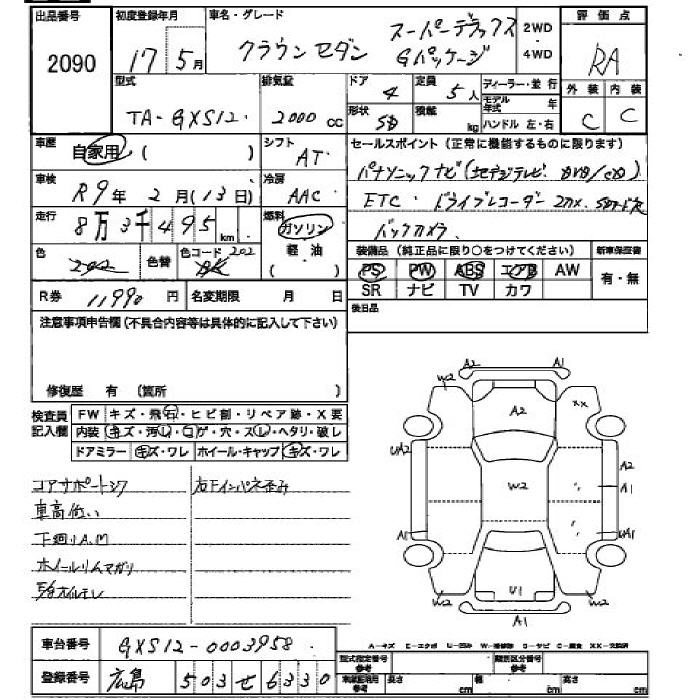 出品番号 初度登録年月 車名・グレード 評価点
2090 17年5月 クラウンセダン スーパーデラックス Gパッケージ 2WD・4WD RA
型式 排気量 ドア 定員 ディーラー・並行 外装 内装
TA-GXS12 2000cc 4 5人 モデル年式 年 C C
形状 積載 ハンドル 左・右
SD kg
車歴 自家用 ( ) シフト AT セールスポイント(正常に機能するものに限ります)
車検 R9年2月(13日) 冷房 AAC パナソニックナビ(地デジテレビ DVD/CD)
走行 8万3千495km 燃料 ガソリン・軽油 ETC・ドライブレコーダー
バックカメラ
色 202 色替 色コード 202 装備品(純正品に限り○をつけてください) 新車保証書
PS PW ABS エアB AW 有・無
R券 11990円 名変期限 月 日 SR ナビ TV カワ
注意事項申告欄(不具合内容等は具体的に記入して下さい) 後日品
修復歴 有 (箇所 )
検査員記入欄 FW キズ・飛石・ヒビ割・リペア跡・X要
内装 キズ・汚レ・コゲ・穴・スレ・ヘタリ・破レ
ドアミラー キズ・ワレ ホイール・キャップ キズ・ワレ
コアサポートシワ 右下インパネ歪み
車高低い
下廻りA.M
ホイールリムマガリ
A2 A1
W2 A2 XX
UA2 W2 A2
A1
A1 UA1
W2 U1 W2
A1
車台番号 GXS12-0003958
登録番号 広島 503 せ 6330
A-キズ E-エクボ U-凹み W-補修跡 S-サビ C-腐食 XX-交換済
型式指定番号 参考 類別区分番号 参考
長さ cm 幅 cm 高さ cm